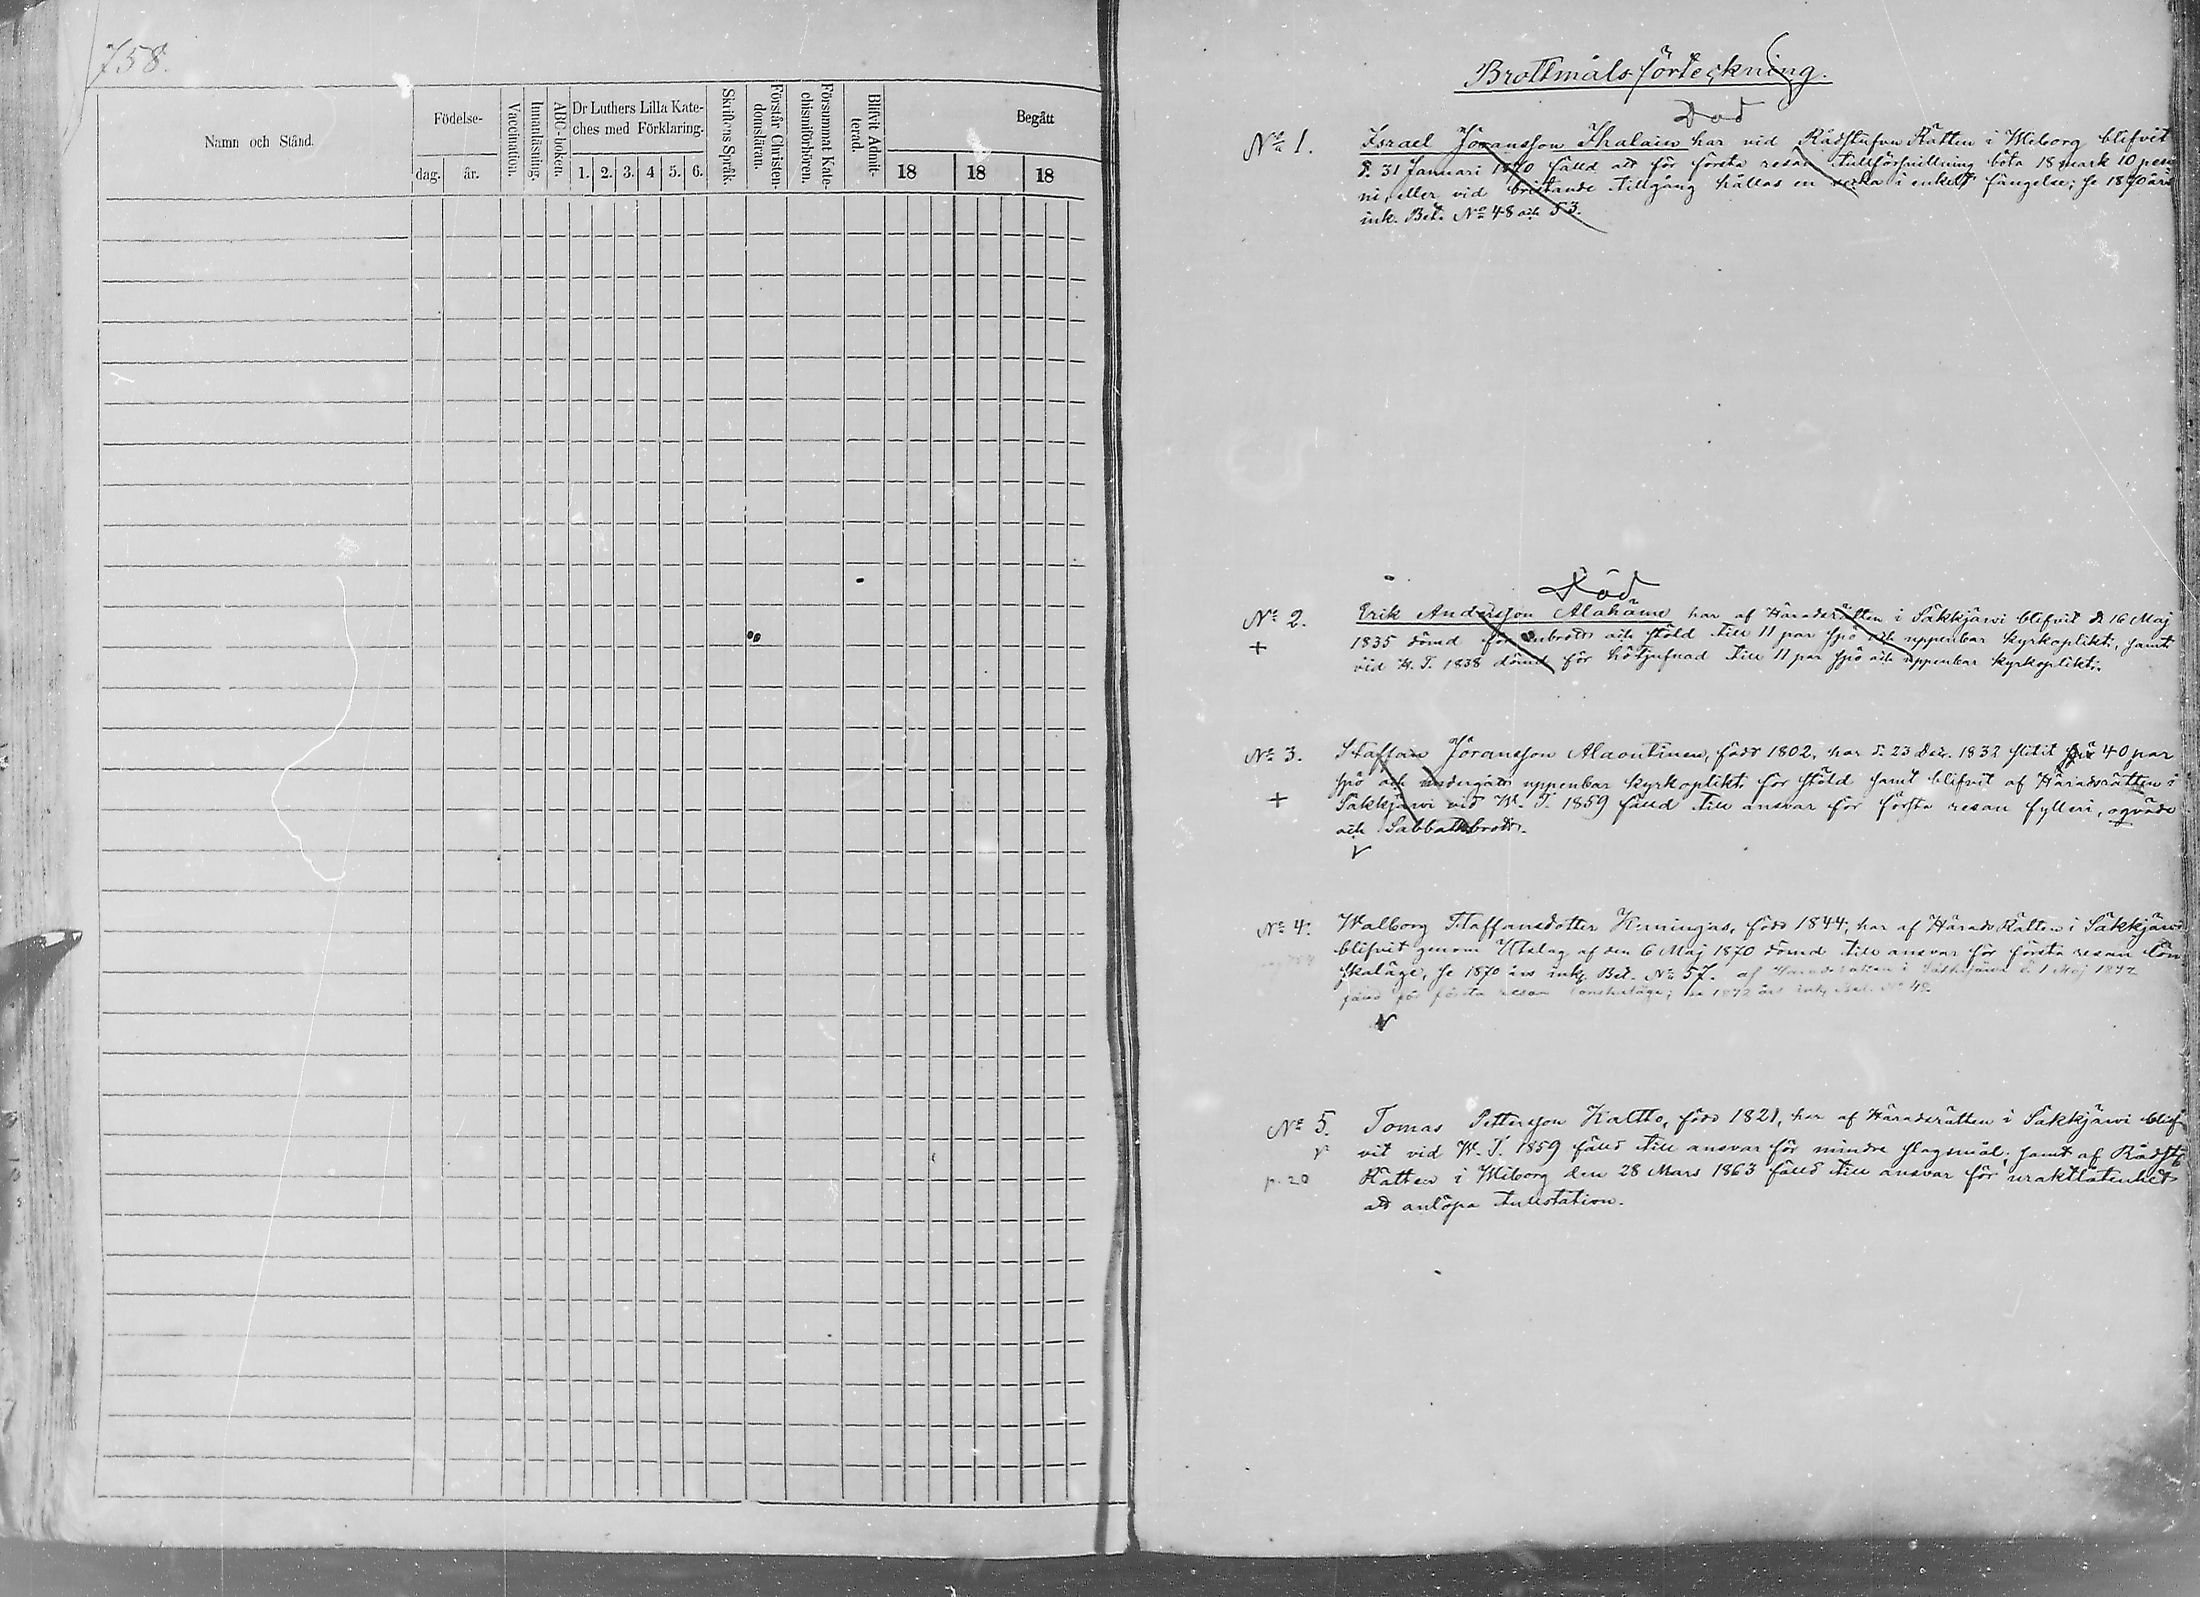 758.
Namn och Stånd.
Födelse-
dag.
år.
Vaccination.
Innanläsning.
ABC-boken.
Dr Luthers Lilla Kate-
ches med Förklaring.
1. 2. 3. 4 5. 6.
Skriftens Språk.
Förstår Christen-
domsläran.
Försummat Kate-
chismiförhören.
Blifvit Admit-
terad.
Begått
18 18 18
Brottmålsförteckning.
Död
No 1. Israel Jöransson Ihalain har vid Rådstufvu Rätten i Wiborg blifvit
d. 31 Januari 1870 fälld att för första resan tullförsnillning böta 18 mark 10 pen
ni, eller vid bristande tillgång hållas en vecka i enkelt fängelse; se 1870 års
ink. Bet. No 48 och 53.
Död
No 2. Erik Andersson Alahäme har af Häradsrätten i Säkkjärvi blifvit d. 16 Maj
+ 1835 dömd för inbrott och stöld till 11 par spö och uppenbar kyrkoplikt, samt
vid W. T. 1838 dömd för hötjufnad till 11 par spö och uppenbar kyrkoplikt.
No 3. Staffan Jöransson Alaoutinen, född 1802, har d. 23 Dec. 1832 slitit 40 par
spö och undergått uppenbar kyrkoplikt för stöld samt blifvit af Häradsrätten i
+ Säkkjärvi vid W. T. 1859 fälld till ansvar för första resan fylleri, oqväde
och Sabbatsbrott.
No 4. Walborg Staffansdotter född 1844, har af Härads Rätten i Säkkjärvi
blifvit genom Utslag af den 6 Maj 1870 dömd till ansvar för första resan lön-
skaläge, se 1870 års ink. Bet. No 57. af Häradsrätten i Säkkjärvi d. 1 Maj 1872
för första resan lönskaläge; se 1872 års ink. Bet. No 48.
No 5. Tomas Pettersson Kaltto, född 1821, har af Häradsrätten i Säkkjärvi blif
vit vid W. T. 1859 fälld till ansvar för mindre slagsmål; samt af Rådst.
p. 20 Rätten i Wiborg den 28 Mars 1863 fälld till ansvar för uraktlåtenhet
att anlöpa tullstation.